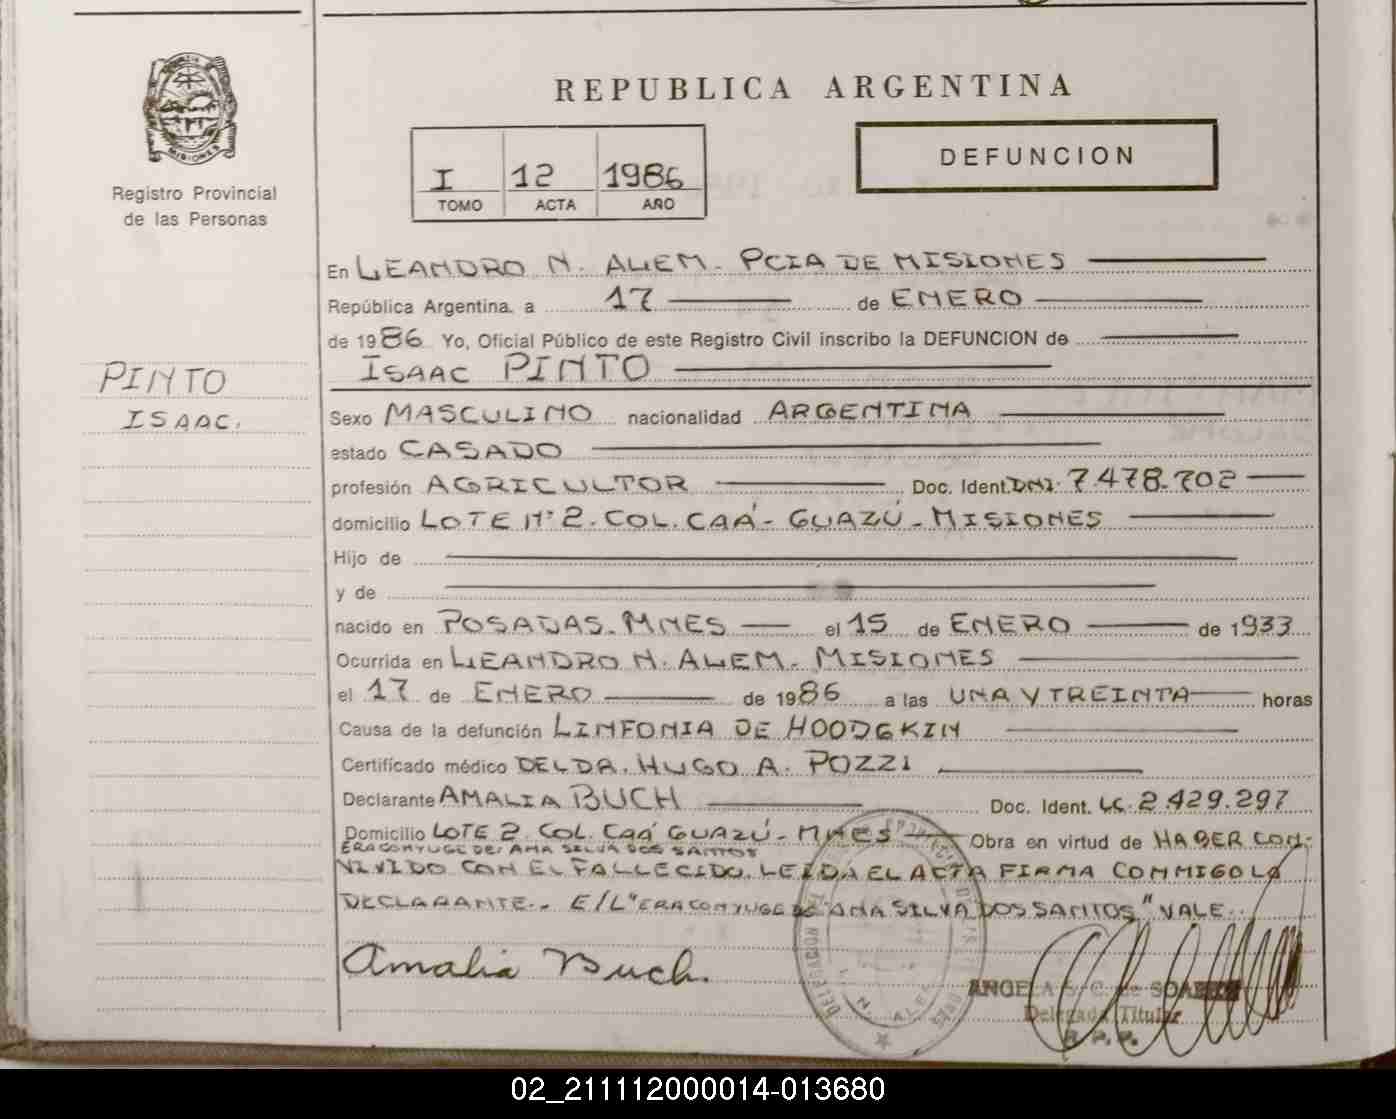 REPUBLICA ARGENTINA
MISIONES
Registro Provincial
de las Personas
I 12 1986
TOMO ACTA AÑO
DEFUNCION
PINTO
ISAAC.
En LEANDRO N. ALEM. PCIA DE MISIONES
República Argentina, a 17 de ENERO
de 1986 Yo, Oficial Público de este Registro Civil inscribo la DEFUNCION de
ISAAC PINTO
Sexo MASCULINO nacionalidad ARGENTINA
estado CASADO
profesión AGRICULTOR Doc. Ident. DNI. 7.478.702
domicilio LOTE Nº 2. COL. CAÁ-GUAZÚ-MISIONES
Hijo de
y de
nacido en POSADAS. MNES el 15 de ENERO de 1933
Ocurrida en LEANDRO N. ALEM. MISIONES
el 17 de ENERO de 1986 a las UNA Y TREINTA horas
Causa de la defunción LINFONIA DE HOODGKIN
Certificado médico DEL DR. HUGO A. POZZI
Declarante AMALIA BUCH Doc. Ident. LC. 2.429.297
Domicilio LOTE 2. COL. CAÁ GUAZÚ-MNES Obra en virtud de HABER CON-
ERA CONYUGE DE: ANA SILVA DOS SANTOS
VIVIDO CON EL FALLECIDO. LEIDA EL ACTA FIRMA CONMIGO LA
DECLARANTE.- E/L "ERA CONYUGE DE ANA SILVA DOS SANTOS" VALE.
Amalia Buch.
DELEGACION
N. ALEM
ANGELA S. C. de
Delegada Titular
R. P. P.
02_211112000014-013680